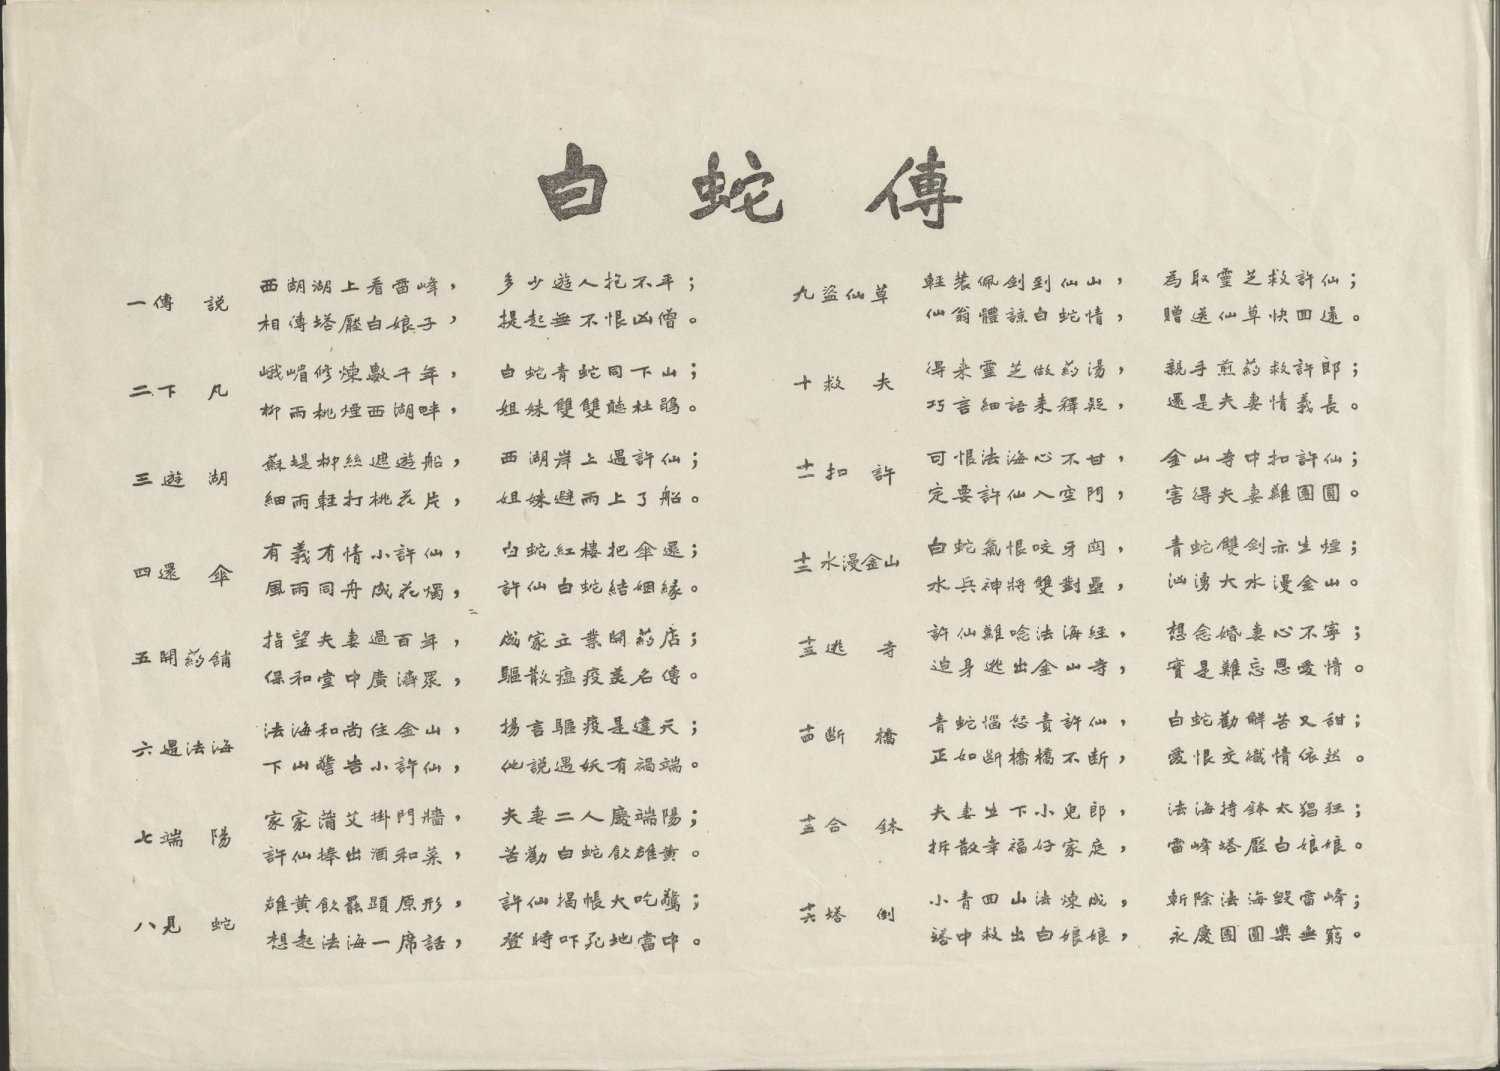 白蛇傳
一傳說
西湖湖上看雷峰，多少遊人抱不平；
相傳塔壓白娘子，提起無不恨凶僧。
二下凡
峨嵋修煉數千年，白蛇青蛇同下山；
柳雨桃煙西湖畔，姐妹雙雙聽杜鵑。
三遊湖
蘇堤柳絲遮遊船，西湖岸上遇許仙；
細雨輕打桃花片，姐妹避雨上了船。
四還傘
有義有情小許仙，白蛇紅樓把傘還；
風雨同舟成花燭，許仙白蛇結姻緣。
五開葯舖
指望夫妻過百年，成家立業開葯店；
保和堂中廣濟眾，驅散瘟疫美名傳。
六遇法海
法海和尚住金山，揚言驅疫是違天；
下山警告小許仙，他說遇妖有禍端。
七端陽
家家蒲艾掛門牆，夫妻二人慶端陽；
許仙捧出酒和菜，苦勸白蛇飲雄黃。
八見蛇
雄黃飲罷顯原形，許仙揭帳大吃驚；
想起法海一席話，登時吓死地當中。
九盜仙草
輕裝佩劍到仙山，為取靈芝救許仙；
仙翁體諒白蛇情，贈送仙草快回還。
十救夫
得来靈芝做葯湯，親手煎葯救許郎；
巧言細語来釋疑，還是夫妻情義長。
十一扣許
可恨法海心不甘，金山寺中扣許仙；
定要許仙入空門，害得夫妻難團圓。
十二水漫金山
白蛇氣恨咬牙関，青蛇雙劍亦生煙；
水兵神將雙對壘，汹湧大水漫金山。
十三逃寺
許仙難唸法海經，想念婚妻心不寧；
迫身逃出金山寺，實是難忘恩愛情。
十四斷橋
青蛇惱怒責許仙，白蛇勸解苦又甜；
正如断橋橋不断，愛恨交織情依然。
十五合鉢
夫妻生下小兒郎，法海持鉢太猖狂；
拆散幸福好家庭，雷峰塔壓白娘娘。
十六塔倒
小青回山法煉成，斬除法海毀雷峰；
塔中救出白娘娘，永慶團圓樂無窮。